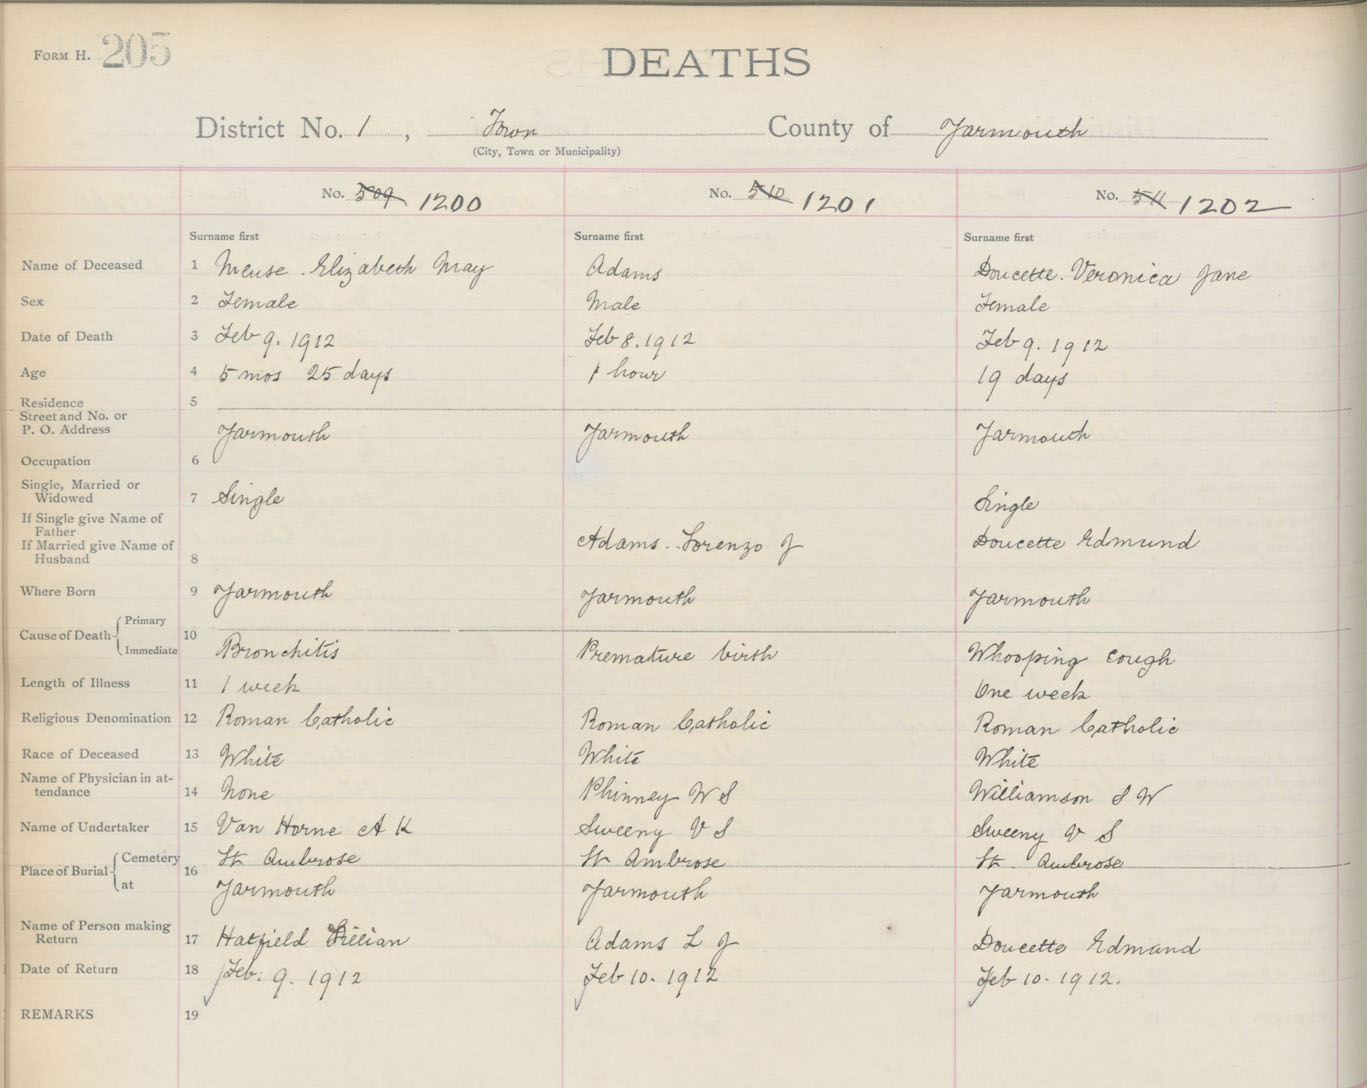 FORM H. 205
DEATHS
District No. 1, Town County of Yarmouth
(City, Town or Municipality)
No. 509 1200 No. 510 1201 No. 511 1202
Surname first Surname first Surname first
Name of Deceased 1 Meuse. Elizabeth May Adams Doucette. Veronica Jane
Sex 2 Female Male Female
Date of Death 3 Feb 9. 1912 Feb 8. 1912 Feb 9. 1912
Age 4 5 mos 25 days 1 hour 19 days
Residence 5
Street and No. or
P. O. Address Yarmouth Yarmouth Yarmouth
Occupation 6
Single, Married or
Widowed 7 Single Single
If Single give Name of
Father
If Married give Name of Adams. Lorenzo J Doucette Edmund
Husband 8
Where Born 9 Yarmouth Yarmouth Yarmouth
Primary
Cause of Death 10
Immediate Bronchitis Premature birth Whooping cough
Length of Illness 11 1 week One week
Religious Denomination 12 Roman Catholic Roman Catholic Roman Catholic
Race of Deceased 13 White White White
Name of Physician in at-
tendance 14 None Phinney W S Williamson S W
Name of Undertaker 15 Van Horne A K Sweeny V S Sweeny V S
Cemetery St Ambrose St Ambrose St. Ambrose
Place of Burial 16
at Yarmouth Yarmouth Yarmouth
Name of Person making
Return 17 Hatfield Lillian Adams L J Doucette Edmund
Date of Return 18 Feb. 9. 1912 Feb 10. 1912 Feb 10. 1912.
REMARKS 19